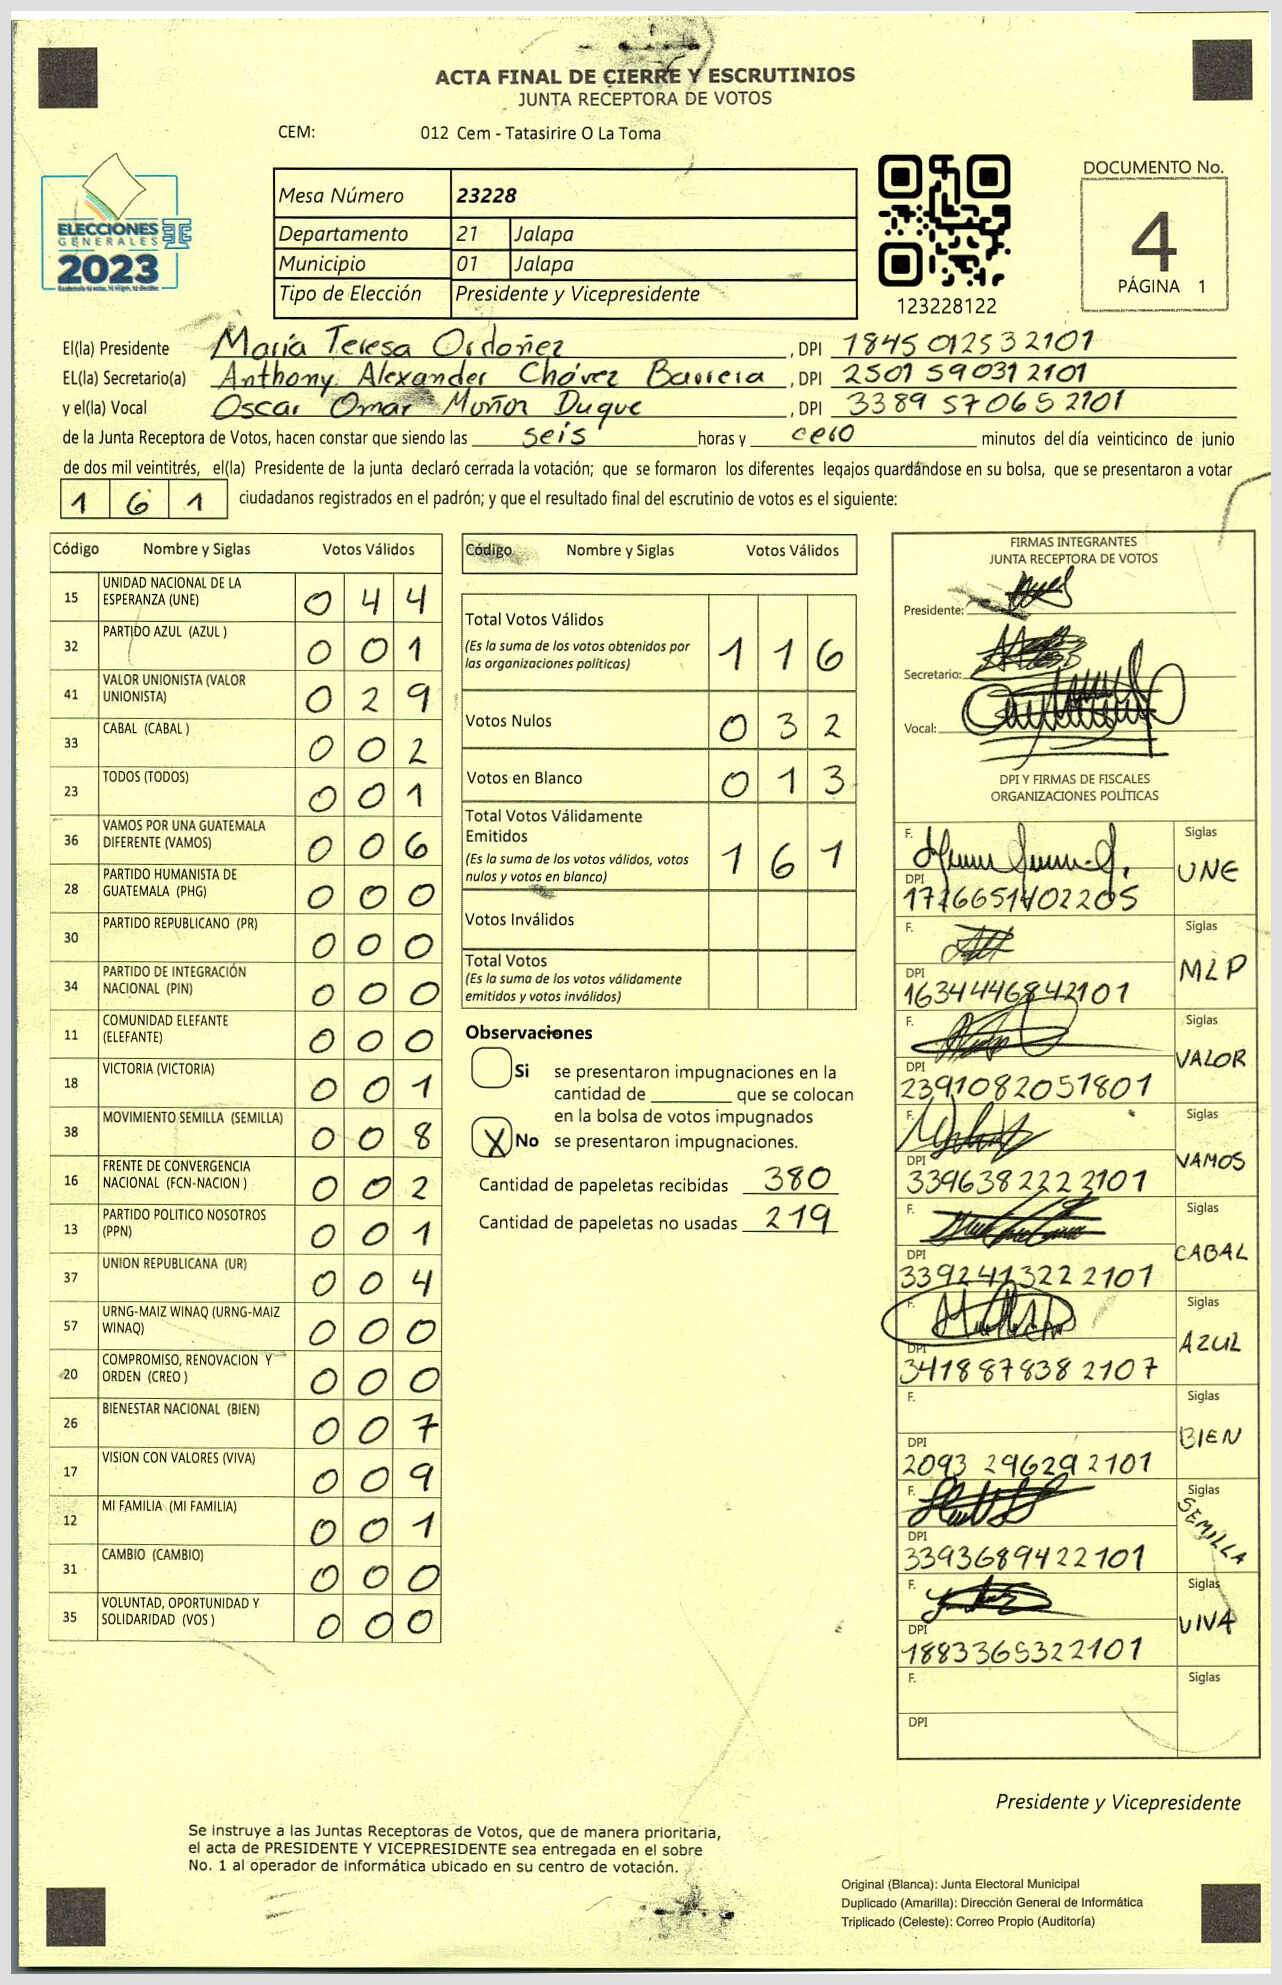 ACTA FINAL DE CIERRE Y ESCRUTINIOS
JUNTA RECEPTORA DE VOTOS
CEM: 012 Cem - Tatasirire O La Toma
ELECCIONES
GENERALES
2023
Mesa Número 23228
Departamento 21 Jalapa
Municipio 01 Jalapa
Tipo de Elección Presidente y Vicepresidente
123228122
DOCUMENTO No.
4
PÁGINA 1
El(la) Presidente María Teresa Ordoñez , DPI 1845 01253 2101
EL(la) Secretario(a) Anthony Alexander Chávez Barrera , DPI 2501 59031 2101
y el(la) Vocal Oscar Omar Muñoz Duque , DPI 3389 57065 2101
de la Junta Receptora de Votos, hacen constar que siendo las seis horas y cero minutos del día veinticinco de junio
de dos mil veintitrés, el(la) Presidente de la junta declaró cerrada la votación; que se formaron los diferentes legajos guardándose en su bolsa, que se presentaron a votar
1 6 1 ciudadanos registrados en el padrón; y que el resultado final del escrutinio de votos es el siguiente:
Código Nombre y Siglas Votos Válidos
15 UNIDAD NACIONAL DE LA ESPERANZA (UNE) 0 4 4
32 PARTIDO AZUL (AZUL ) 0 0 1
41 VALOR UNIONISTA (VALOR UNIONISTA) 0 2 9
33 CABAL (CABAL ) 0 0 2
23 TODOS (TODOS) 0 0 1
36 VAMOS POR UNA GUATEMALA DIFERENTE (VAMOS) 0 0 6
28 PARTIDO HUMANISTA DE GUATEMALA (PHG) 0 0 0
30 PARTIDO REPUBLICANO (PR) 0 0 0
34 PARTIDO DE INTEGRACIÓN NACIONAL (PIN) 0 0 0
11 COMUNIDAD ELEFANTE (ELEFANTE) 0 0 0
18 VICTORIA (VICTORIA) 0 0 1
38 MOVIMIENTO SEMILLA (SEMILLA) 0 0 8
16 FRENTE DE CONVERGENCIA NACIONAL (FCN-NACION ) 0 0 2
13 PARTIDO POLITICO NOSOTROS (PPN) 0 0 1
37 UNION REPUBLICANA (UR) 0 0 4
57 URNG-MAIZ WINAQ (URNG-MAIZ WINAQ) 0 0 0
20 COMPROMISO, RENOVACION Y ORDEN (CREO ) 0 0 0
26 BIENESTAR NACIONAL (BIEN) 0 0 7
17 VISION CON VALORES (VIVA) 0 0 9
12 MI FAMILIA (MI FAMILIA) 0 0 1
31 CAMBIO (CAMBIO) 0 0 0
35 VOLUNTAD, OPORTUNIDAD Y SOLIDARIDAD (VOS ) 0 0 0
Código Nombre y Siglas Votos Válidos
Total Votos Válidos 1 1 6
(Es la suma de los votos obtenidos por
las organizaciones políticas)
Votos Nulos 0 3 2
Votos en Blanco 0 1 3
Total Votos Válidamente
Emitidos 1 6 1
(Es la suma de los votos válidos, votos
nulos y votos en blanco)
Votos Inválidos
Total Votos
(Es la suma de los votos válidamente
emitidos y votos inválidos)
Observaciones
Si se presentaron impugnaciones en la
cantidad de ________ que se colocan
en la bolsa de votos impugnados
X No se presentaron impugnaciones.
Cantidad de papeletas recibidas 380
Cantidad de papeletas no usadas 219
FIRMAS INTEGRANTES
JUNTA RECEPTORA DE VOTOS
Presidente:
Secretario:
Vocal:
DPI Y FIRMAS DE FISCALES
ORGANIZACIONES POLÍTICAS
F. Siglas UNE
DPI 1726651402205
F. Siglas MLP
DPI 1634446842101
F. Siglas VALOR
DPI 2391082051801
F. Siglas VAMOS
DPI 3396382222101
F. Siglas CABAL
DPI 3392413222101
F. Siglas AZUL
DPI 341887838 2107
F. Siglas BIEN
DPI 2093 29629 2101
F. Siglas SEMILLA
DPI 3393689422101
F. Siglas VIVA
DPI 1883365322101
F. Siglas
DPI
Presidente y Vicepresidente
Se instruye a las Juntas Receptoras de Votos, que de manera prioritaria,
el acta de PRESIDENTE Y VICEPRESIDENTE sea entregada en el sobre
No. 1 al operador de informática ubicado en su centro de votación.
Original (Blanca): Junta Electoral Municipal
Duplicado (Amarilla): Dirección General de Informática
Triplicado (Celeste): Correo Propio (Auditoría)